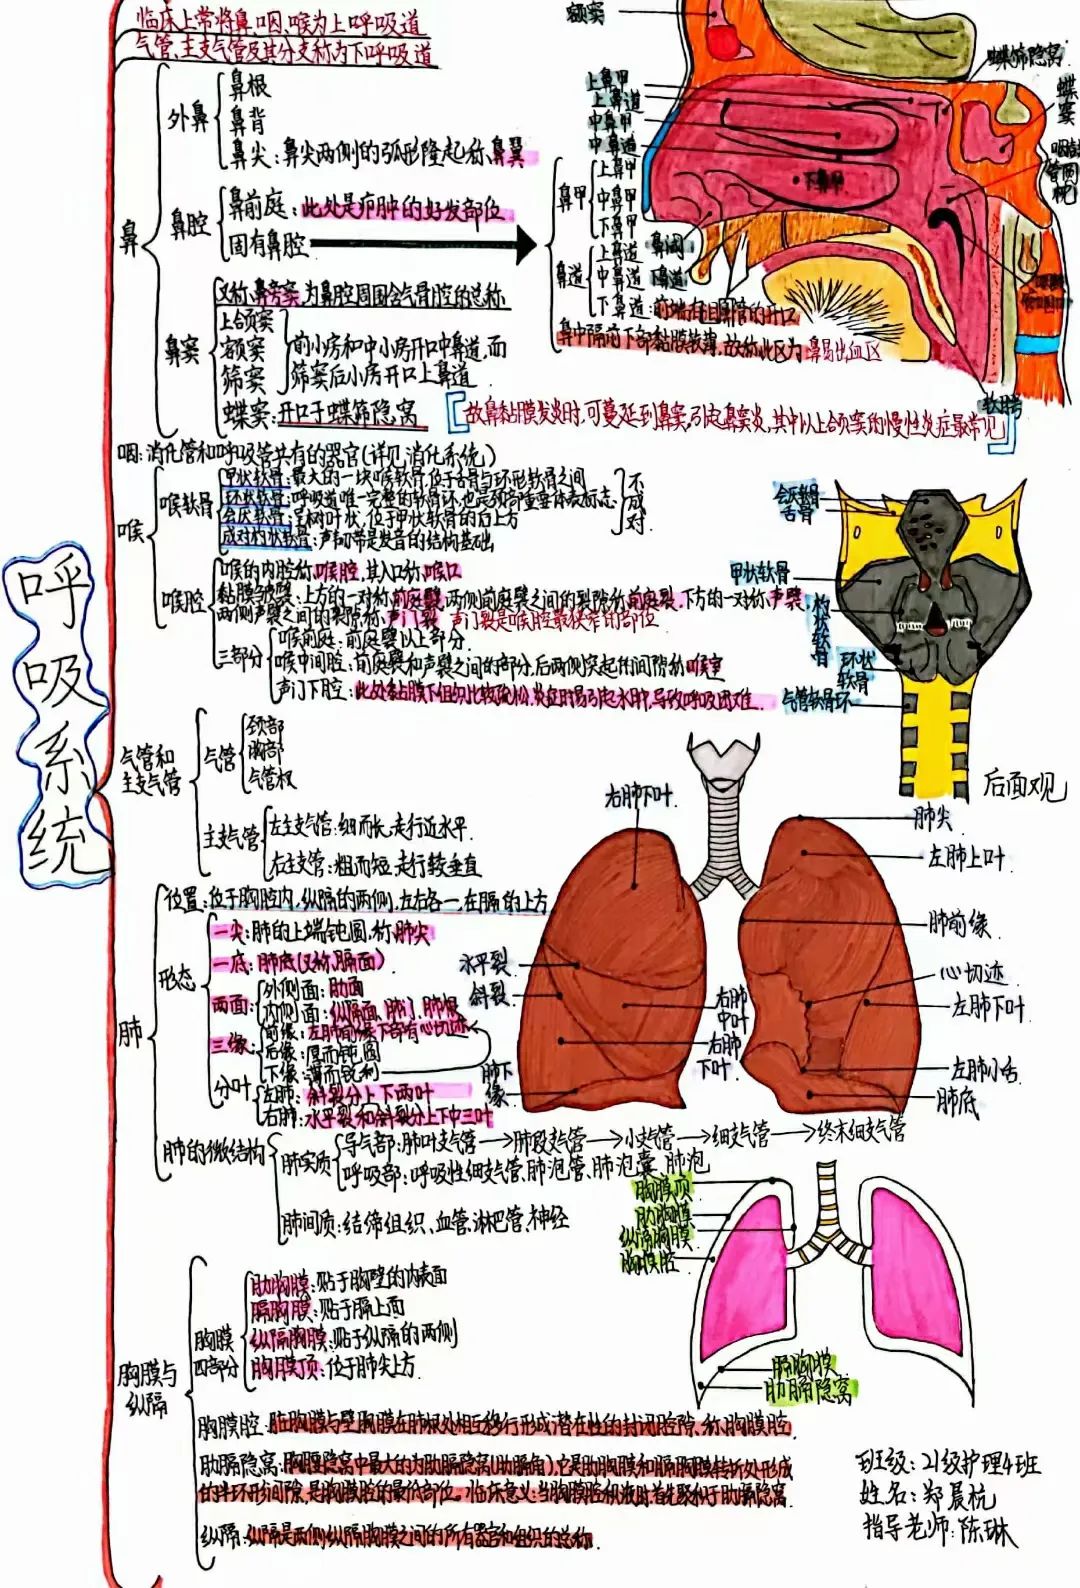 呼吸系统
临床上常将鼻、咽、喉为上呼吸道
气管、主支气管及其分支称为下呼吸道
鼻
外鼻
鼻根
鼻背
鼻尖：鼻尖两侧的弧形隆起称、鼻翼
鼻腔
鼻前庭：此处是疖肿的好发部位
固有鼻腔
鼻甲
上鼻甲
中鼻甲
下鼻甲
鼻道
上鼻道
中鼻道
下鼻道：前端有鼻泪管的开口
鼻中隔前下部黏膜较薄，故称此区为鼻易出血区
鼻窦
又称、鼻旁窦，为鼻腔周围含气骨腔的总称
上颌窦
额窦
筛窦
前小房和中小房开口中鼻道，而
筛窦后小房开口上鼻道
蝶窦：开口于蝶筛隐窝
故鼻黏膜发炎时，可蔓延到鼻窦，引起鼻窦炎，其中以上颌窦的慢性炎症最常见
额窦
上鼻甲
上鼻道
中鼻甲
中鼻道
下鼻甲
鼻阈
下鼻道
蝶筛隐窝
蝶窦
咽鼓管圆枕
软腭
咽：消化管和呼吸管共有的器官（详见消化系统）
喉
喉软骨
甲状软骨：最大的一块喉软骨，位于舌骨与环形软骨之间
环状软骨：呼吸道唯一完整的软骨环，也是颈部重要体表标志
会厌软骨：呈树叶状，位于甲状软骨的后上方
不成对
成对杓状软骨：声韧带是发音的结构基础
喉腔
喉的内腔称喉腔，其入口称喉口
黏膜皱襞：上方的一对称、前庭襞，两侧前庭襞之间的裂隙称前庭裂，下方的一对称、声襞
两侧声襞之间的裂隙称、声门裂 声门裂是喉腔最狭窄的部位
三部分
喉前庭：前庭襞以上部分
喉中间腔：前庭襞和声襞之间的部分，后两侧突起的间隙称喉室
声门下腔：此处黏膜下组织比较疏松，炎症时易引起水肿，导致呼吸困难
会厌软骨
舌骨
甲状软骨
杓状软骨
环状软骨
气管软骨环
后面观
气管和主支气管
气管
颈部
胸部
气管杈
主支气管
左主支气管：细而长，走行近水平
右主支管：粗而短，走行较垂直
肺
位置：位于胸腔内，纵隔的两侧，左右各一，在膈的上方
形态
一尖：肺的上端钝圆，称、肺尖
一底：肺底（又称、膈面）
两面：
外侧面：肋面
内侧面：纵隔面、肺门、肺根
三缘：
前缘：左肺前缘下部有心切迹
后缘：厚而钝圆
下缘：薄而锐利
分叶
左肺：斜裂分上下两叶
右肺：水平裂和斜裂分上下中三叶
肺的微结构
肺实质
导气部：肺叶支气管→肺段支气管→小支气管→细支气管→终末细支气管
呼吸部：呼吸性细支气管、肺泡管、肺泡囊、肺泡
肺间质：结缔组织、血管、淋巴管、神经
右肺下叶
水平裂
斜裂
右肺中叶
右肺下叶
肺下缘
肺尖
左肺上叶
肺前缘
心切迹
左肺下叶
左肺小舌
肺底
胸膜与纵隔
胸膜四部分
肋胸膜：贴于胸壁的内表面
膈胸膜：贴于膈上面
纵隔胸膜：贴于纵隔的两侧
胸膜顶：位于肺尖上方
胸膜腔：脏胸膜与壁胸膜在肺根处相互移行形成潜在性的封闭腔隙、称、胸膜腔
肋膈隐窝：胸膜隐窝中最大的为肋膈隐窝（肋膈角），它是肋胸膜和膈胸膜转折处形成
的半环形间隙，是胸膜腔的最低部位。临床意义：当胸膜腔积液时首先聚积于肋膈隐窝
纵隔：纵隔是两侧纵隔胸膜之间的所有器官和组织的总称
胸膜顶
肋胸膜
纵隔胸膜
胸膜腔
膈胸膜
肋膈隐窝
班级：21级护理4班
姓名：郑晨杭
指导老师：陈琳